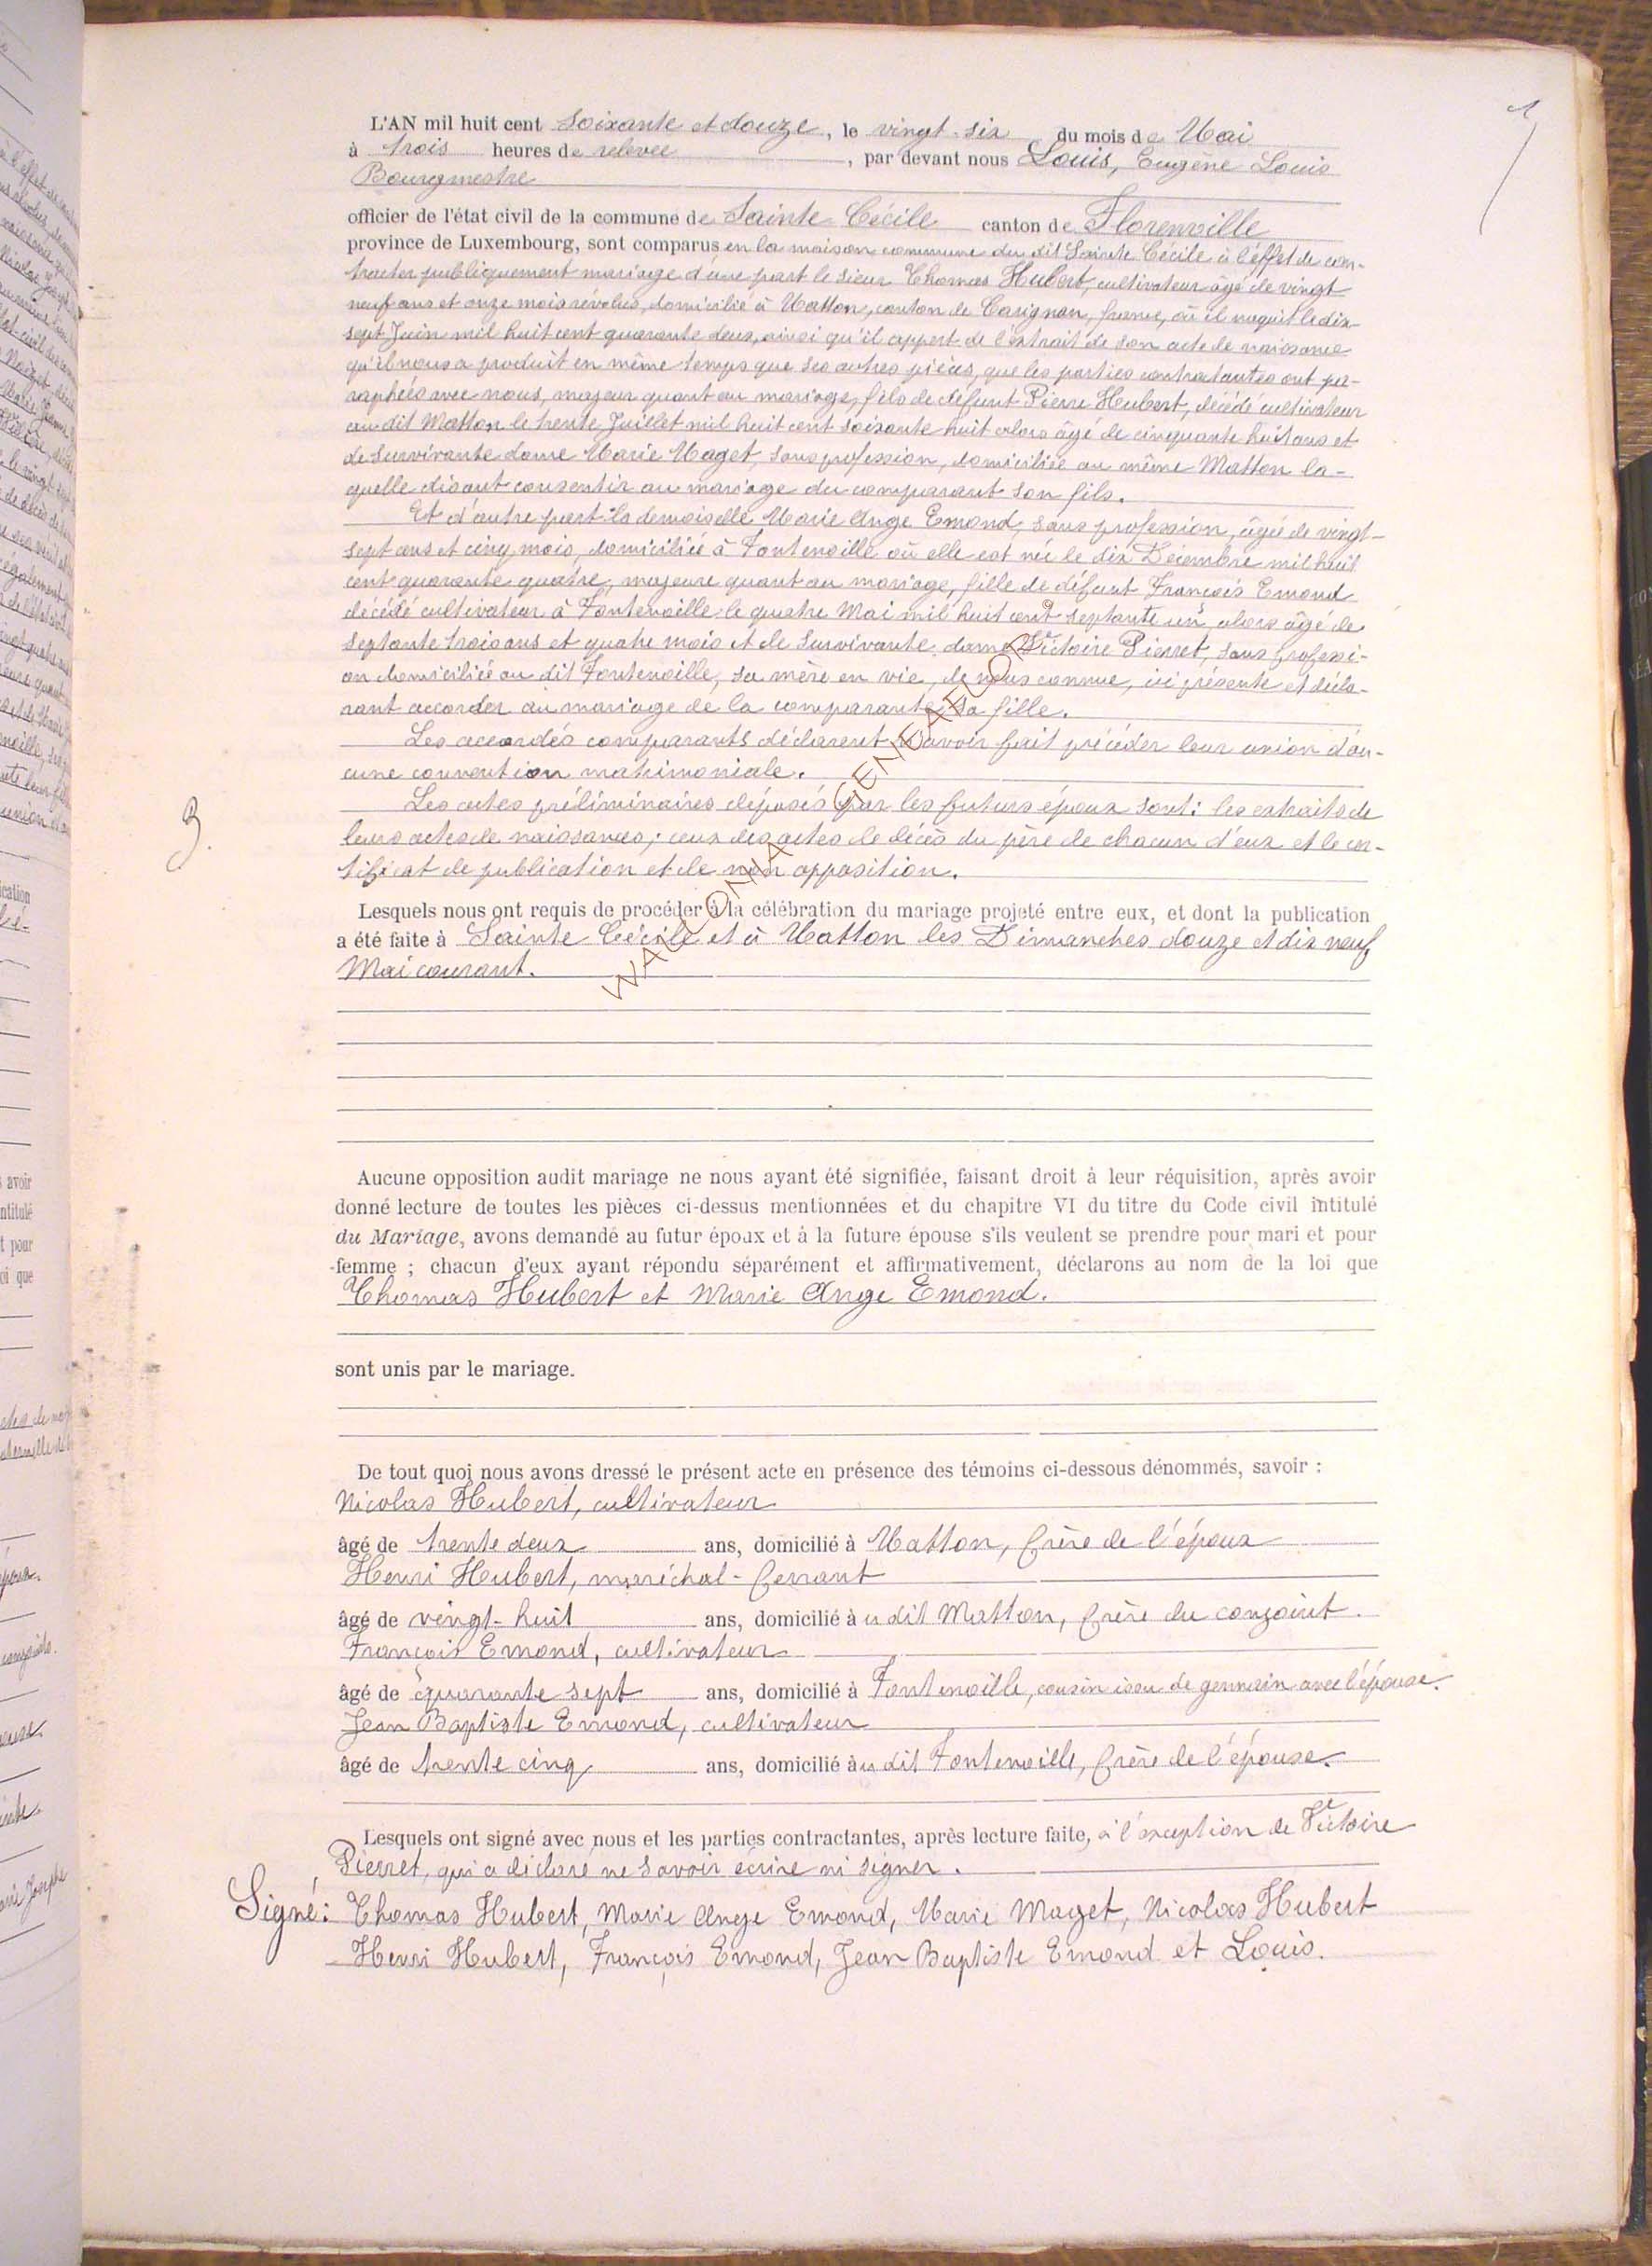 1
L'AN mil huit cent soixante et douze, le vingt-six du mois de Mai
à trois heures de relevée, par devant nous Louis, Eugène Louis
Bourgmestre
officier de l'état civil de la commune de Sainte Cécile canton de Florenville
province de Luxembourg, sont comparus en la maison commune du dit Sainte Cécile à l'effet de con-
tracter publiquement mariage d'une part le sieur Thomas Hubert, cultivateur âgé de vingt
neuf ans et onze mois révolus, domicilié à Matton, canton de Carignan, france, où il naquit le dix-
sept Juin mil huit cent quarante deux, ainsi qu'il appert de l'extrait de son acte de naissance
qu'il nous a produit en même temps que ses autres pièces, que les parties contractantes ont pa-
raphées avec nous, majeur quant au mariage, fils de défunt Pierre Hubert, décédé cultivateur
au dit Matton le trente Juillet mil huit cent soixante huit alors âgé de cinquante huit ans et
de survivante dame Marie Maget, sans profession, domiciliée au même Matton la-
quelle disant consentir au mariage du comparant son fils.
Et d'autre part la demoiselle Marie Ange Emond, sans profession, âgée de vingt-
sept ans et cinq mois, domiciliée à Fontenoille où elle est née le dix Décembre mil huit
cent quarante quatre, majeure quant au mariage, fille de défunt François Emond
décédé cultivateur à Fontenoille le quatre Mai mil huit cent septante un alors âgé de
septante trois ans et quatre mois et de survivante dame Victoire Pierret, sans professi-
on domiciliée au dit Fontenoille, sa mère en vie, de nous connue, ici présente et décla-
rant accorder au mariage de la comparante sa fille.
Les accordés comparants déclarent n'avoir fait précéder leur union d'au-
cune convention matrimoniale.
3.
Les actes préliminaires déposés par les futurs époux sont: les extraits de
leurs actes de naissances; ceux des actes de décès du père de chacun d'eux et le cer-
tificat de publication et de non opposition.
WALLONIA GENEAFLOR
Lesquels nous ont requis de procéder à la célébration du mariage projeté entre eux, et dont la publication
a été faite à Sainte Cécile et à Matton les Dimanches douze et dix neuf
Mai courant.
Aucune opposition audit mariage ne nous ayant été signifiée, faisant droit à leur réquisition, après avoir
donné lecture de toutes les pièces ci-dessus mentionnées et du chapitre VI du titre du Code civil intitulé
du Mariage, avons demandé au futur époux et à la future épouse s'ils veulent se prendre pour mari et pour
femme ; chacun d'eux ayant répondu séparément et affirmativement, déclarons au nom de la loi que
Thomas Hubert et Marie Ange Emond.
sont unis par le mariage.
De tout quoi nous avons dressé le présent acte en présence des témoins ci-dessous dénommés, savoir :
Nicolas Hubert, cultivateur
âgé de trente deux ans, domicilié à Matton, frère de l'époux
Henri Hubert, maréchal-ferrant
âgé de vingt-huit ans, domicilié à u dit Matton, frère du conjoint.
François Emond, cultivateur
âgé de quarante sept ans, domicilié à Fontenoille, cousin issu de germain avec l'épouse.
Jean Baptiste Emond, cultivateur
âgé de trente cinq ans, domicilié à u dit Fontenoille, frère de l'épouse.
Lesquels ont signé avec nous et les parties contractantes, après lecture faite, à l'exception de Victoire
Pierret, qui a déclaré ne savoir écrire ni signer.
Signé: Thomas Hubert, Marie Ange Emond, Marie Maget, Nicolas Hubert
Henri Hubert, François Emond, Jean Baptiste Emond et Louis.